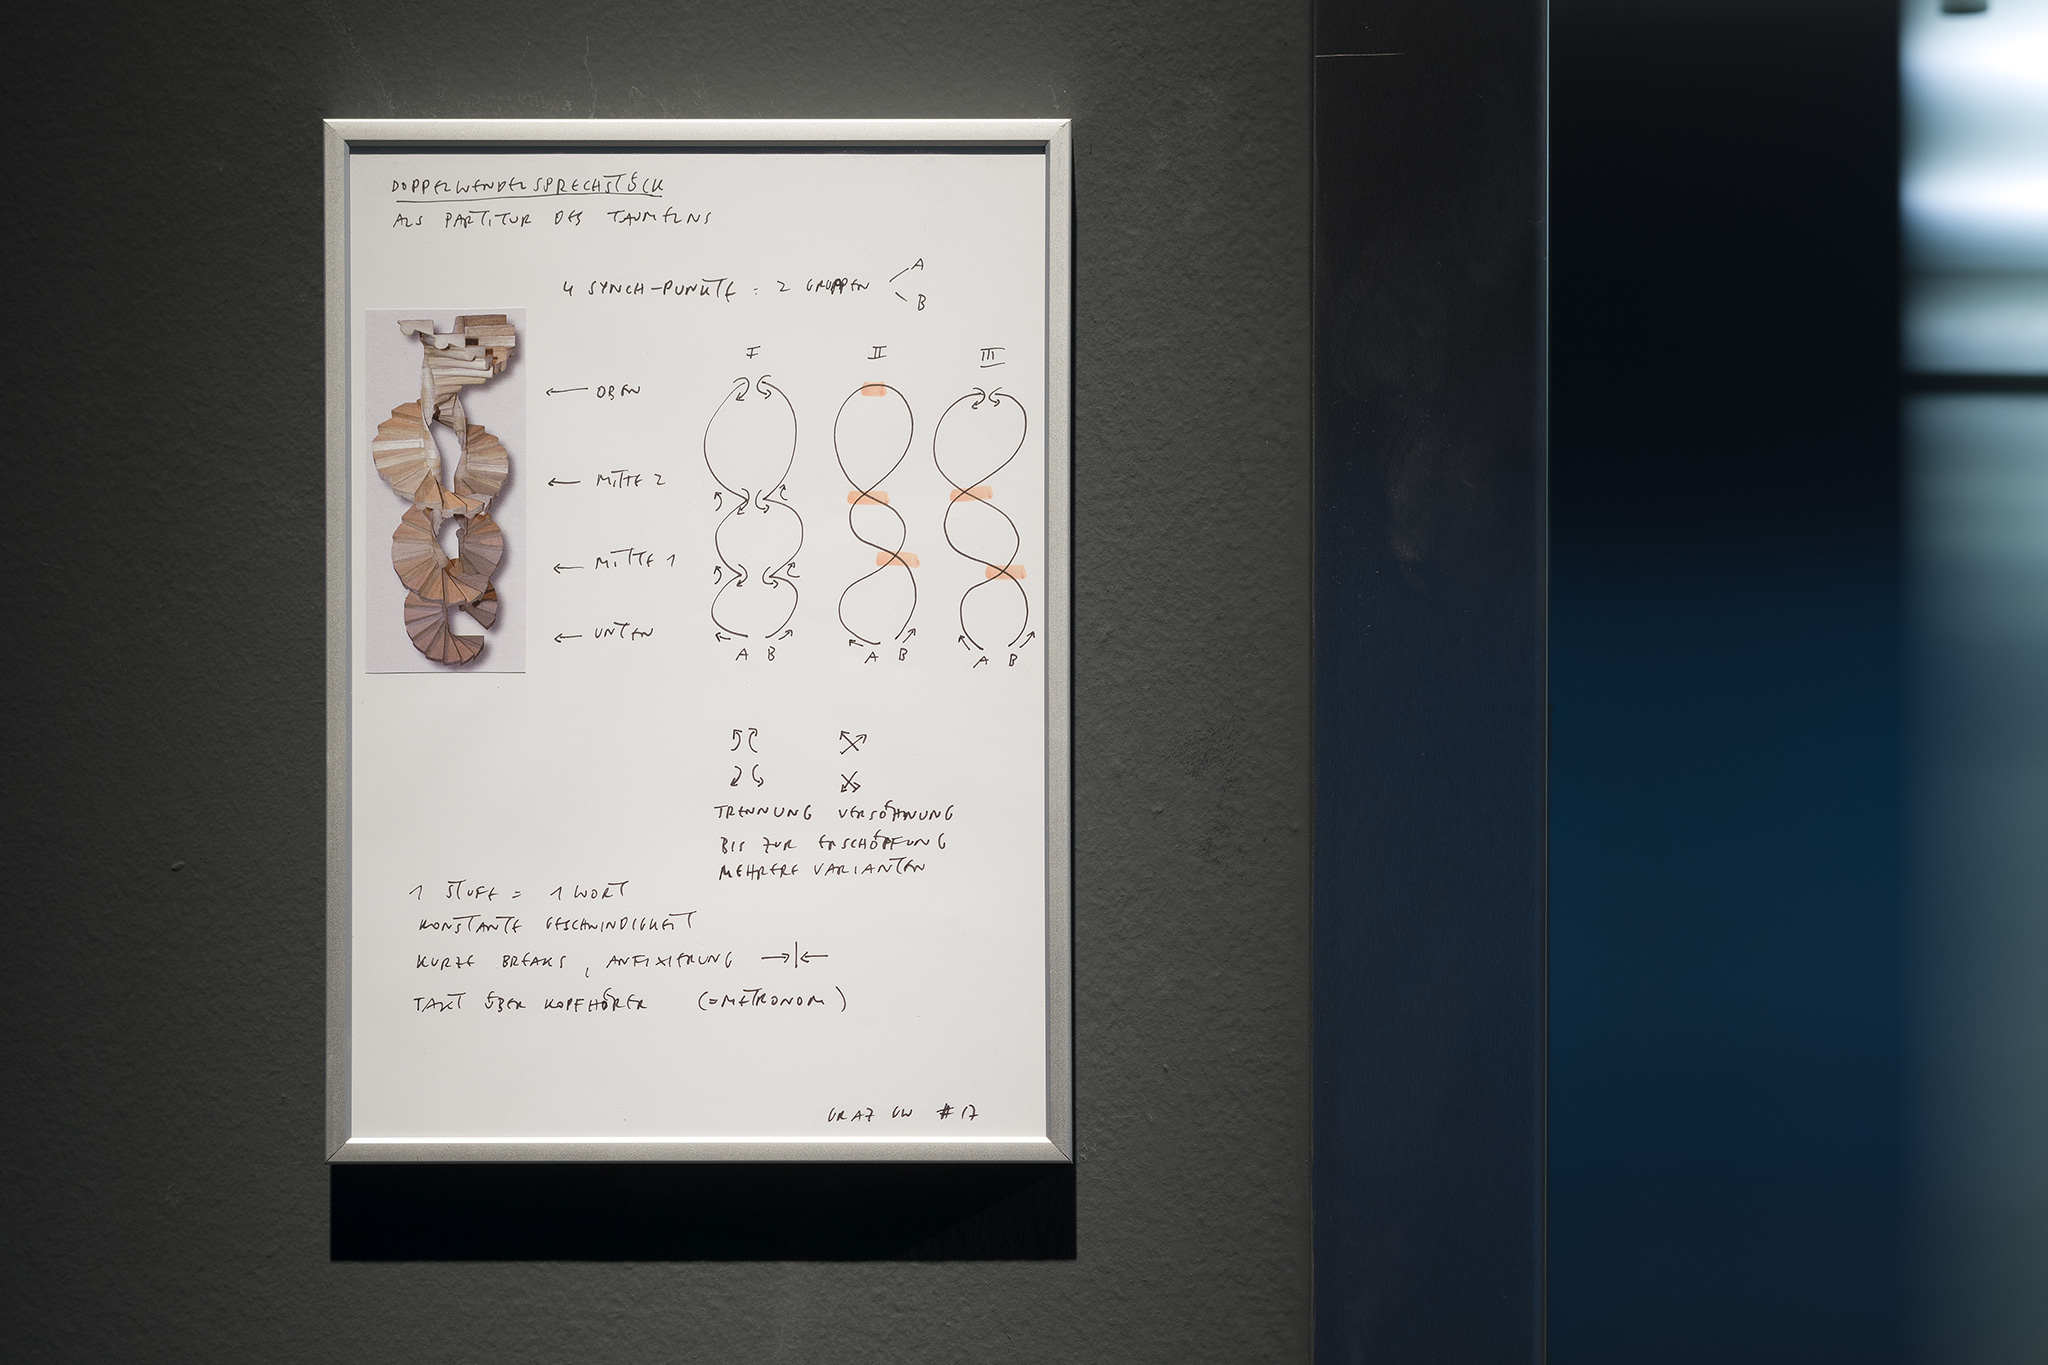 DOPPELWENDELSPRECHSTÜCK
ALS PARTITUR DES TAUMELNS
4 SYNCH-PUNKTE : 2 GRUPPEN
A
B
I II III
← OBEN
← MITTE 2
← MITTE 1
← UNTEN
A B A B A B
TRENNUNG VERSÖHNUNG
BIS ZUR ERSCHÖPFUNG
MEHRERE VARIANTEN
1 STUFE = 1 WORT
KONSTANTE GESCHWINDIGKEIT
KURZE BREAKS, ANFIXIERUNG →|←
TAKT ÜBER KOPFHÖRER (=METRONOM)
GRAZ GW #17